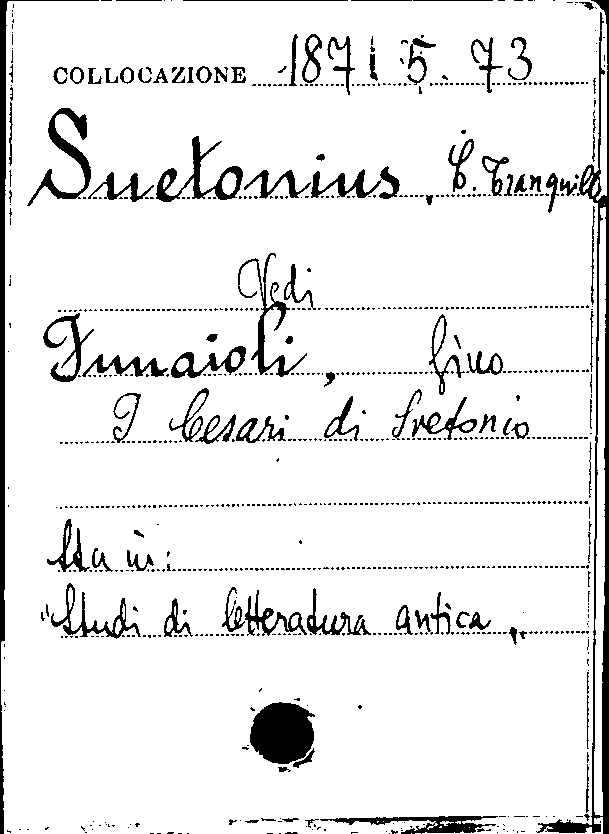 COLLOCAZIONE 1871 5. 73
Suetonius, C. Tranquillo
Vedi
Funaioli, Gino
I Cesari di Svetonio
Sta in:
"Studi di letteratura antica„